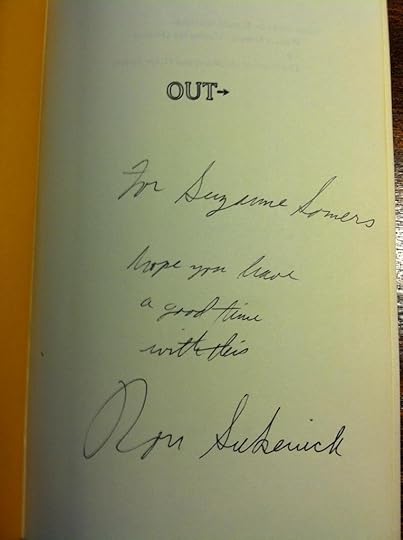 OUT→
For Suzanne Somers
hope you have
a good time
with this
Ron Sukenick